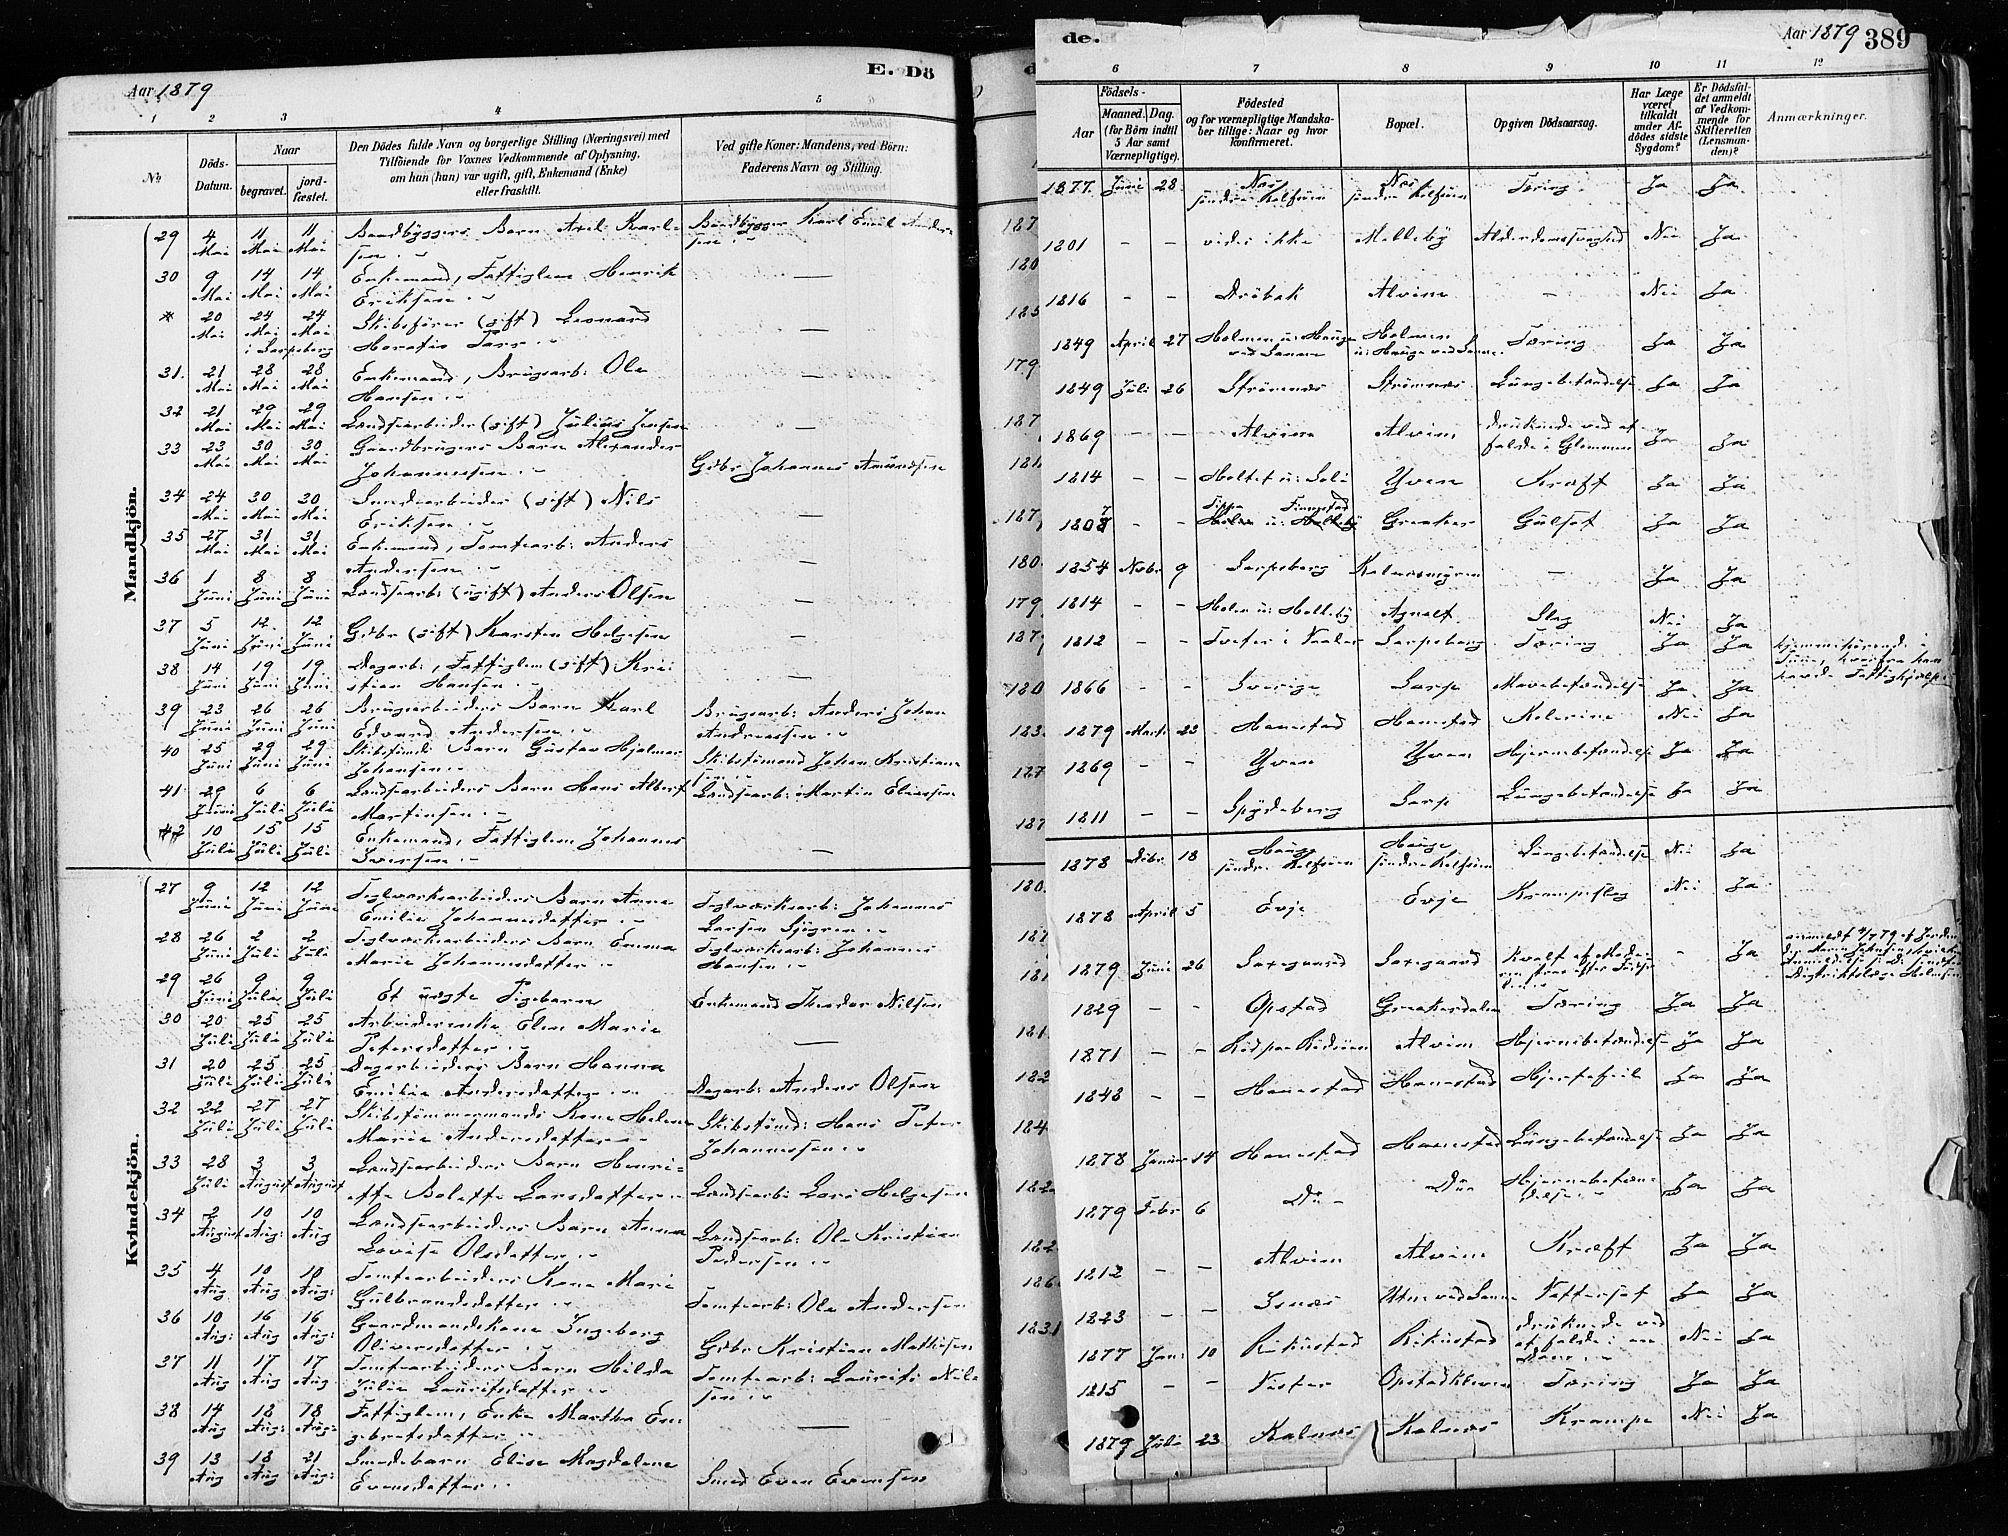 Aar 1879
E. Dö
1 2 3 4 5
No
Döds-Datum.
Naar
begravet.
jord-fæstet.
Den Dödes fulde Navn og borgerlige Stilling (Næringsvei) med
Tilföiende for Voxnes Vedkommende af Oplysning,
om han (hun) var ugift, gift, Enkemand (Enke)
eller fraskilt.
Ved gifte Koner: Mandens, ved Börn:
Faderens Navn og Stilling.
Mandkjön.
29 4 Mai 11 Mai 11 Mai Baadbyggers Barn Axel Karl-
sen Baadbygger Karl Emil Ander-
sen
30 9 Mai 14 Mai 14 Mai Enkemand, Fattiglem Henrik
Eriksen —
* 20 Mai 24 Mai 24 Mai Skibsförer (gift) Leonard
i Sarpsborg Horatio
31. 21 Mai 28 Mai 28 Mai Enkemand, Brugsarb. Ole
Hansen —
32 21 Mai 29 Mai 29 Mai Landsearbeider (gift) Julius Jensen —
33 23 Mai 30 Mai 30 Mai Gaardbrugers Barn Alexander
Johannessen Gdbr Johannes Amundsen
34 24 Mai 30 Mai 30 Mai (gift) Nils
Eriksen —
35 27 Mai 31 Mai 31 Mai Enkemand, Tomtearb: Anders
Andersen —
36 1 Juni 8 Juni 8 Juni Landsearb: (ugift) Anders Olsen —
37 5 Juni 12 Juni 12 Juni Gdbr (gift) Karsten Helgesen —
38 14 Juni 19 Juni 19 Juni Dagarb:, Fattiglem (gift) Kri-
stian Hansen —
39 23 Juni 26 Juni 26 Juni Brugsarbeiders Barn Karl
Edvard Andersen Brugsarb: Anders Johan
Andreassen
40 25 Juni 29 Juni 29 Juni Skibstömds Barn Gustav Hjalmar
Johansen Skibstömand Johan Kristian-
sen
41 29 Juni 6 Juli 6 Juli Landsearbeiders Barn Hans Albert
Martinsen Landsearb: Martin Eliassen
42 10 Juli 15 Juli 15 Juli Enkemand, Fattiglem Johannes
Iversen —
Kvindekjön.
27 9 Juni 12 Juni 12 Juni Teglværksarbeiders Barn Anne
Emilie Johannesdatter Teglværksarb: Johannes
Larsen Sjögren
28 26 Juni 2 Juli 2 Juli Teglværksarbeiders Barn Emma
Marie Johannesdatter Teglværksarb: Johannes
Hansen
29 26 Juni 9 Juli 9 Juli Et uægte Pigebarn Enkemand Theodor Nilsen
30 20 Juli 25 Juli 25 Juli Arbeiderenke Elen Marie
Petersdatter —
31 20 Juli 25 Juli 25 Juli Dagarbeiders Barn Hanna
Emilie Andersdatter Dagarb: Anders Olsen
32 22 Juli 27 Juli 27 Juli Skibstömmermands Kone Helene
Marie Andersdatter Skibstömd: Hans Peter
Johannessen
33 28 Juli 3 August 3 August Landsearbeiders Barn Henri-
ette Bolette Larsdatter Landsearb: Lars Helgesen
34 2 August 10 Aug: 10 Aug Landsearbeiders Barn Anna
Lovise Olsdatter Landsearb: Ole Kristian
Pedersen
35 4 Aug 10 Aug 10 Aug: Tomtearbeiders Kone Mari
Gulbrandsdatter Tomtearb: Ole Andersen
36 10 Aug: 16 Aug 16 Aug: Gaardmandskone Ingeborg
Oliversdatter Gdbr Kristian Mathisen
37 11 Aug 17 Aug 17 Aug Tomtearbeiders Barn Hilda
Julie Lauritsdatter Tomtearb: Laurits Nil-
sen
38 14 Aug 18 Aug: 18 Aug: Fattiglem, Enke Martha En-
gebretsdatter —
39 13 Aug 18 Aug 21 Aug: Smedebarn Elise Magdalene
Evensdatter Smed Even Evensen
de.
Aar 1879 389
6 7 8 9 10 11 12
Födsels-
Aar
Maaned. Dag.
(for Börn indtil
5 Aar samt
Værnepligtige).
Födested
og for værnepligtige Mandska-
ber tillige: Naar og hvor
konfirmeret.
Bopæl.
Opgiven Dödsaarsag.
Har Læge
været
tilkaldt
under Af-
dödes sidste
Sygdom?
Er Dödsfal-
det anmeldt
af Vedkom-
mende for
Skifteretten
(Lensman-
den)?
Anmærkninger.
1877. Juni 28 Næs
söndre Kolfsöen Næs
söndre Kolfsöen Tæring Ja Ja
1801 - - vides ikke Melleby Alderdomssvaghed Nei Ja
1816 - - Dröbak Alvim — Nei Ja
1849 April 27 Holmen u: Hauge
ved Sannæ Holmen
u: Hauge ved Sannæ Tæring Ja Ja
1849 Juli 26 Strömnæs Strömnæs Lungebetændelse Ja Ja
1869 - - Alvim Alvim druknede ved at
falde i Glommen Ja Ja
1814 - - Holtet u: Soli Yven Kræft Ja Ja
1807 - - Finnestad Greaker Gulsot Ja Ja
1854 Novbr 9 Sarpsborg Kalnæsmyren — Ja Ja
1814 - - Holm u: Holleby Agnalt Slag Nei Ja
1812 - - Tveter i Vaaler Sarpsborg Tæring Ja Ja hjemmehörende i
Tune, hvorfra han
havde Fattighjælp
1866 - - Sverige Sarp Mavebetændelse Ja Ja
1879 Marts 23 Hannestad Hannestad Kolerine Nei Ja
1869 - - Yven Yven Hjernebetændelse Ja Ja
1811 - - Spydeberg Sarp Lungebetændelse Ja Ja
1878 Debr 18 Hauge
söndre Kolfsöen Hauge
söndre Kolfsöen Lungebetændelse Nei Ja
1878 April 5 Evje Evje Krampeslag Nei Ja
1879 Juni 26 Saxegaard Saxegaard Kvalt af Mode-
ren strax efter Födse-
len - Ja
1829 - - Opstad Greakerdalen Tæring Ja Ja
1871 - - Alvim Hjernebetændelse Ja Ja
1848 - - Hannestad Hannestad Hjertefeil Ja Ja
1878 Januar 14 Hannestad Hannestad Lungebetændelse Ja Ja
1879 Febr 6 Du- Du- Hjernebetæn-
delse Ja Ja
1812 - - Alvim Alvim Kræft Ja Ja
1823 - - Isnæs Utne ved Sannæ Vattersot Ja Ja
1877 Jan: 10 Rikustad Rikustad druknede ved
at falde i en
Nei Ja
1815 - - Opstadkleven Tæring Ja Ja
1879 Juli 23 Kalnæs Kalnæs Krampe Nei Ja